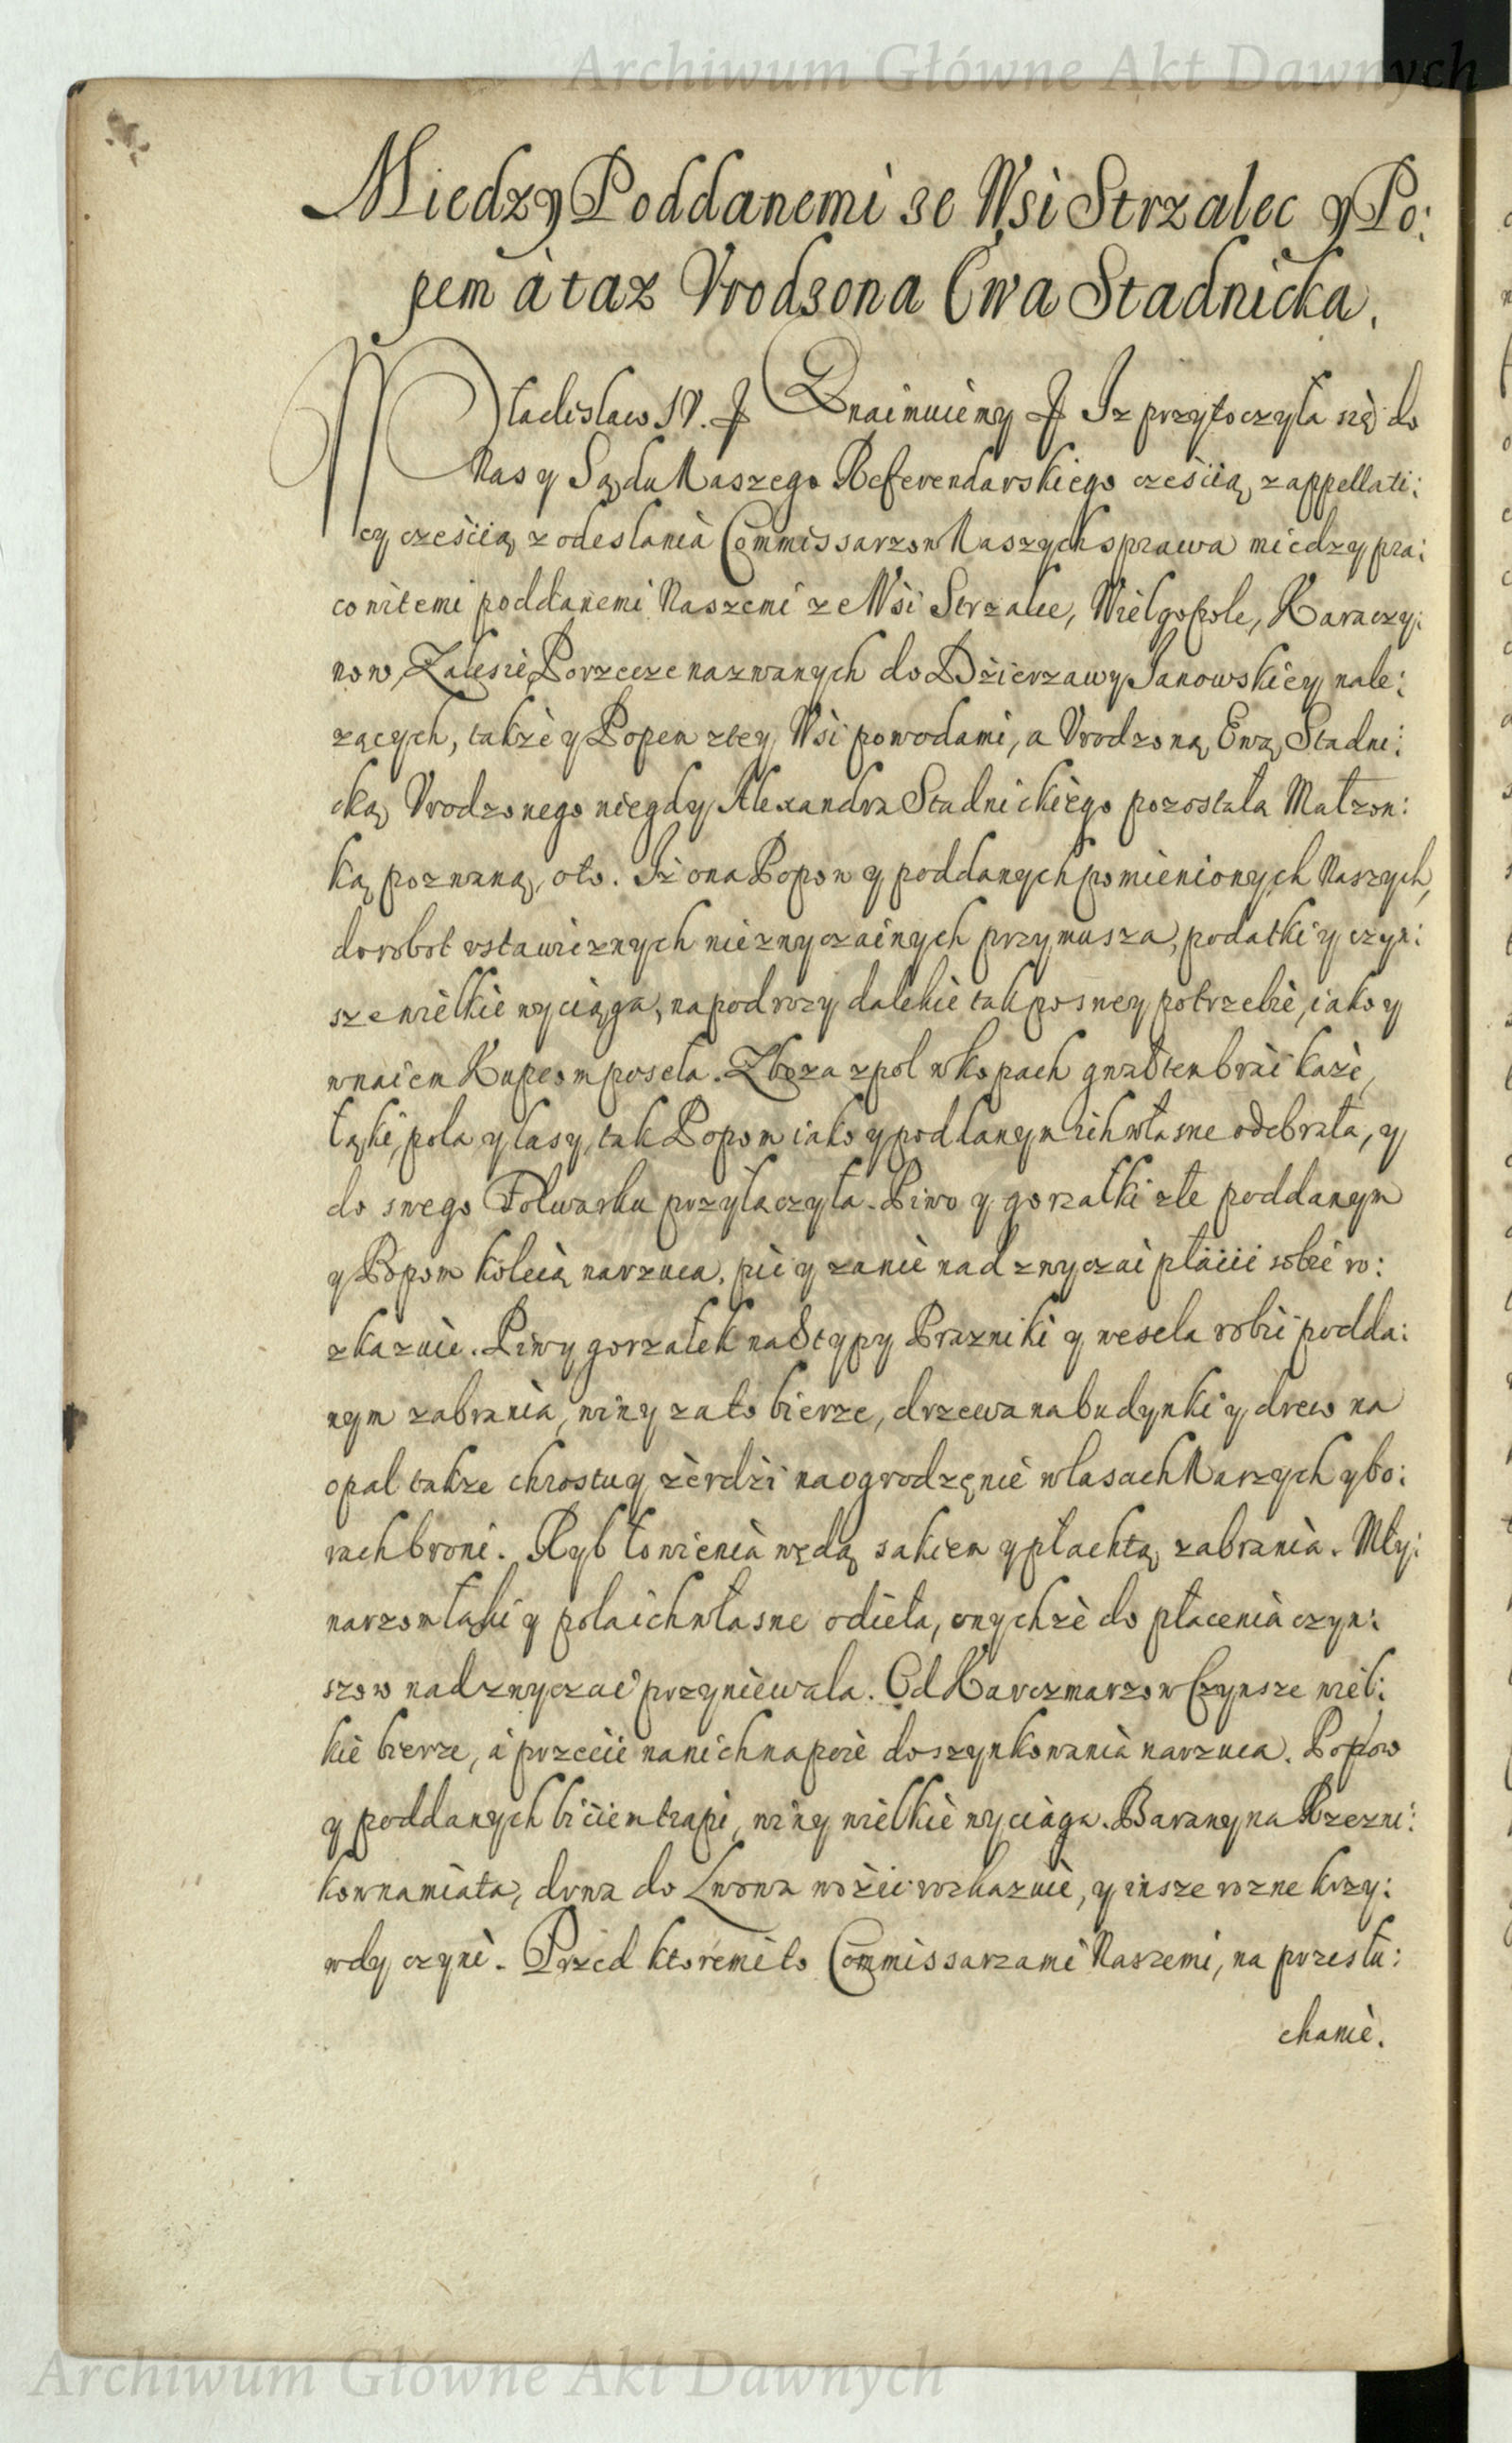 Archiwum Główne Akt Dawnych
Miedzy Poddanemi ze Wsi Strzalec y Po:
pem à taz Vrodzona Ewa Stadnicka.
Wladislaw IV. Oznaimuiemy Iz przytoczyła się do
Nas y Sądu Naszego Referendarskiego cześcią z appellati:
cy cześcią z odesłania Commissarzow Naszych sprawa miedzy pra:
cowitemi poddanemi Naszemi ze Wsi Strzalec, Wielgopole, Karaczy:
now, Zalesie Porzecze nazwanych do Dzierzawy Janowskiey nale:
zących, także y Popem z tey Wsi powodami, a Vrodzoną Ewą Stadni:
cką Vrodzonego niegdy Alexandra Stadnickiego pozostała Małzon:
ką pozwaną, oto. Iż ona Popow y poddanych pomienionych Naszych,
do robot vstawicznych niezwyczainych przymusza, podatki y czyn:
sze wielkie wyciąga, na podrozy dalekie tak po swey potrzebie, iako y
wnaiem Kupcom poseła. Zboza z pol w kopach gwałtem brać każe,
łąki, pola y lasy, tak Popom iako y poddanym ich własne odebrała, y
do swego Folwarku przyłaczyła. Piwo y gorzałki złe poddanym
y Popom koleią narzuca, pić y zanie nad zwyczai płacić sobie ro:
zkazuie. Piwy gorzałek na Stypy Prazniki y wesela robić podda:
nym zabrania, winy zato bierze, drzewa na budynki y drew na
opal takze chrostu y żerdzi na ogrodzęnie w lasach Naszych y bo:
rach broni. Ryb łowienia wędą sakiem y płachtą zabrania. Mły:
narzom łąki y pola ich własne odieła, onychże do płacenia czyn:
szow nad zwyczai przyniewala. Od Karczmarzow Czynsze wiel:
kie bierze, à przecie na nich napoie do szynkowania narzuca. Popow
y poddanych biciem trapi, winy wielkie wyciąga. Barany na Rzezni:
kow namiata, drwa do Lwowa wozić rozkazuie, y insze rozne krzy:
wdy czyni. Przed ktoremi to Commissarzami Naszemi, na przesłu:
chanie.
Archiwum Główne Akt Dawnych